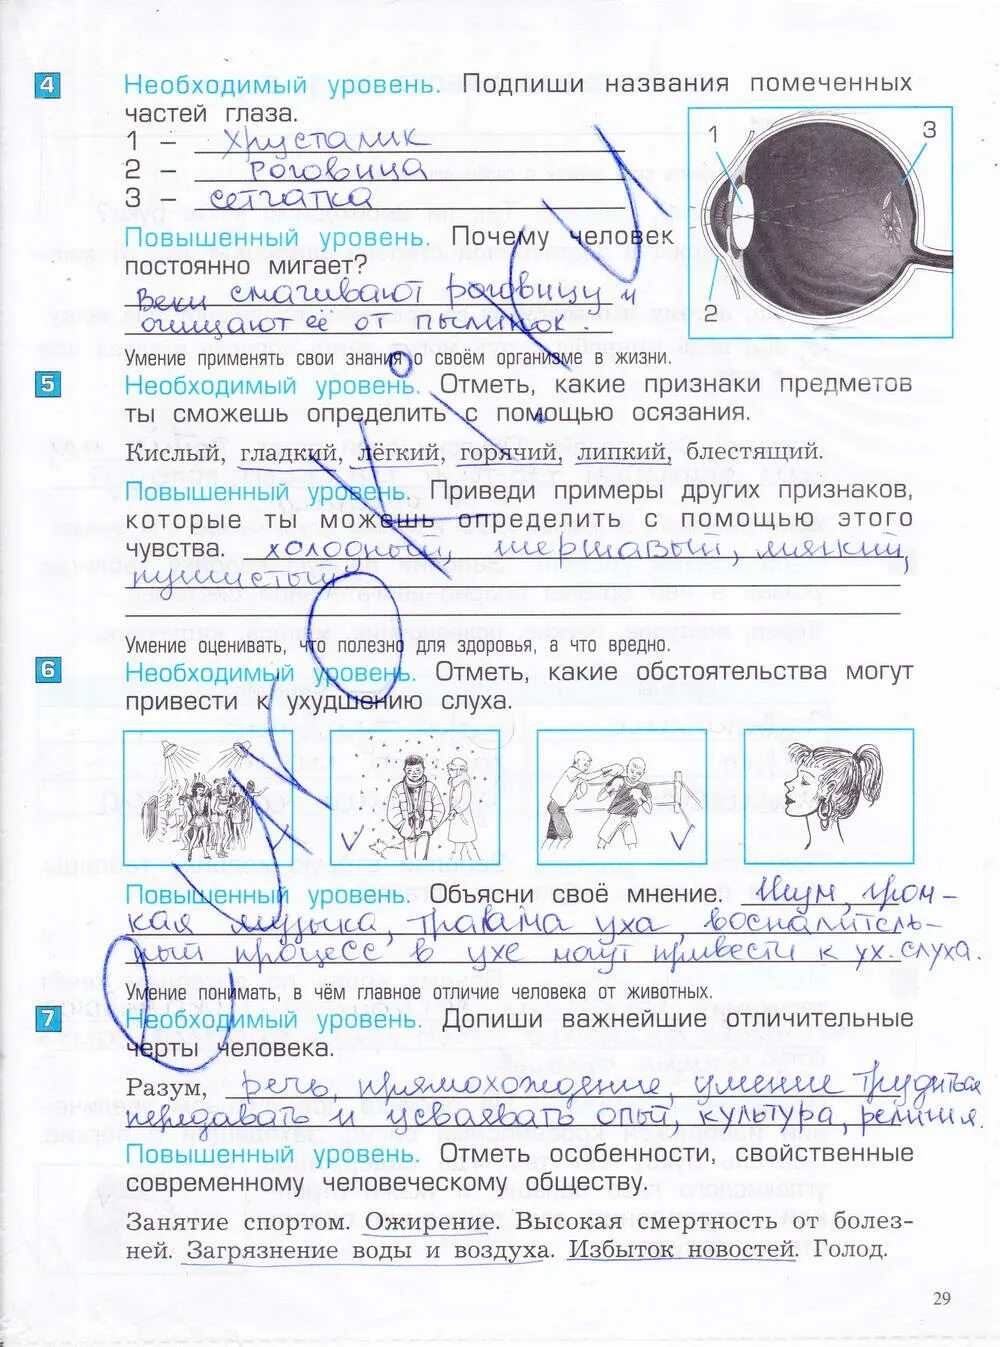 4 Необходимый уровень. Подпиши названия помеченных
частей глаза.
1 – хрусталик
2 – Роговица
3 – сетчатка
1
3
2
Повышенный уровень. Почему человек
постоянно мигает?
Веки смачивают роговицу и
очищают её от пылинок.
Умение применять свои знания о своём организме в жизни.
5 Необходимый уровень. Отметь, какие признаки предметов
ты сможешь определить с помощью осязания.
Кислый, гладкий, лёгкий, горячий, липкий, блестящий.
Повышенный уровень. Приведи примеры других признаков,
которые ты можешь определить с помощью этого
чувства. холодный, шершавый, мягкий,
пушистый
Умение оценивать, что полезно для здоровья, а что вредно.
6 Необходимый уровень. Отметь, какие обстоятельства могут
привести к ухудшению слуха.
Повышенный уровень. Объясни своё мнение. Шум, гром-
кая музыка, травма уха, воспалитель-
ный процесс в ухе могут привести к ух. слуха.
Умение понимать, в чём главное отличие человека от животных.
7 Необходимый уровень. Допиши важнейшие отличительные
черты человека.
Разум, речь, прямохождение, умение трудиться
передавать и усваивать опыт, культура, религия.
Повышенный уровень. Отметь особенности, свойственные
современному человеческому обществу.
Занятие спортом. Ожирение. Высокая смертность от болез-
ней. Загрязнение воды и воздуха. Избыток новостей. Голод.
29